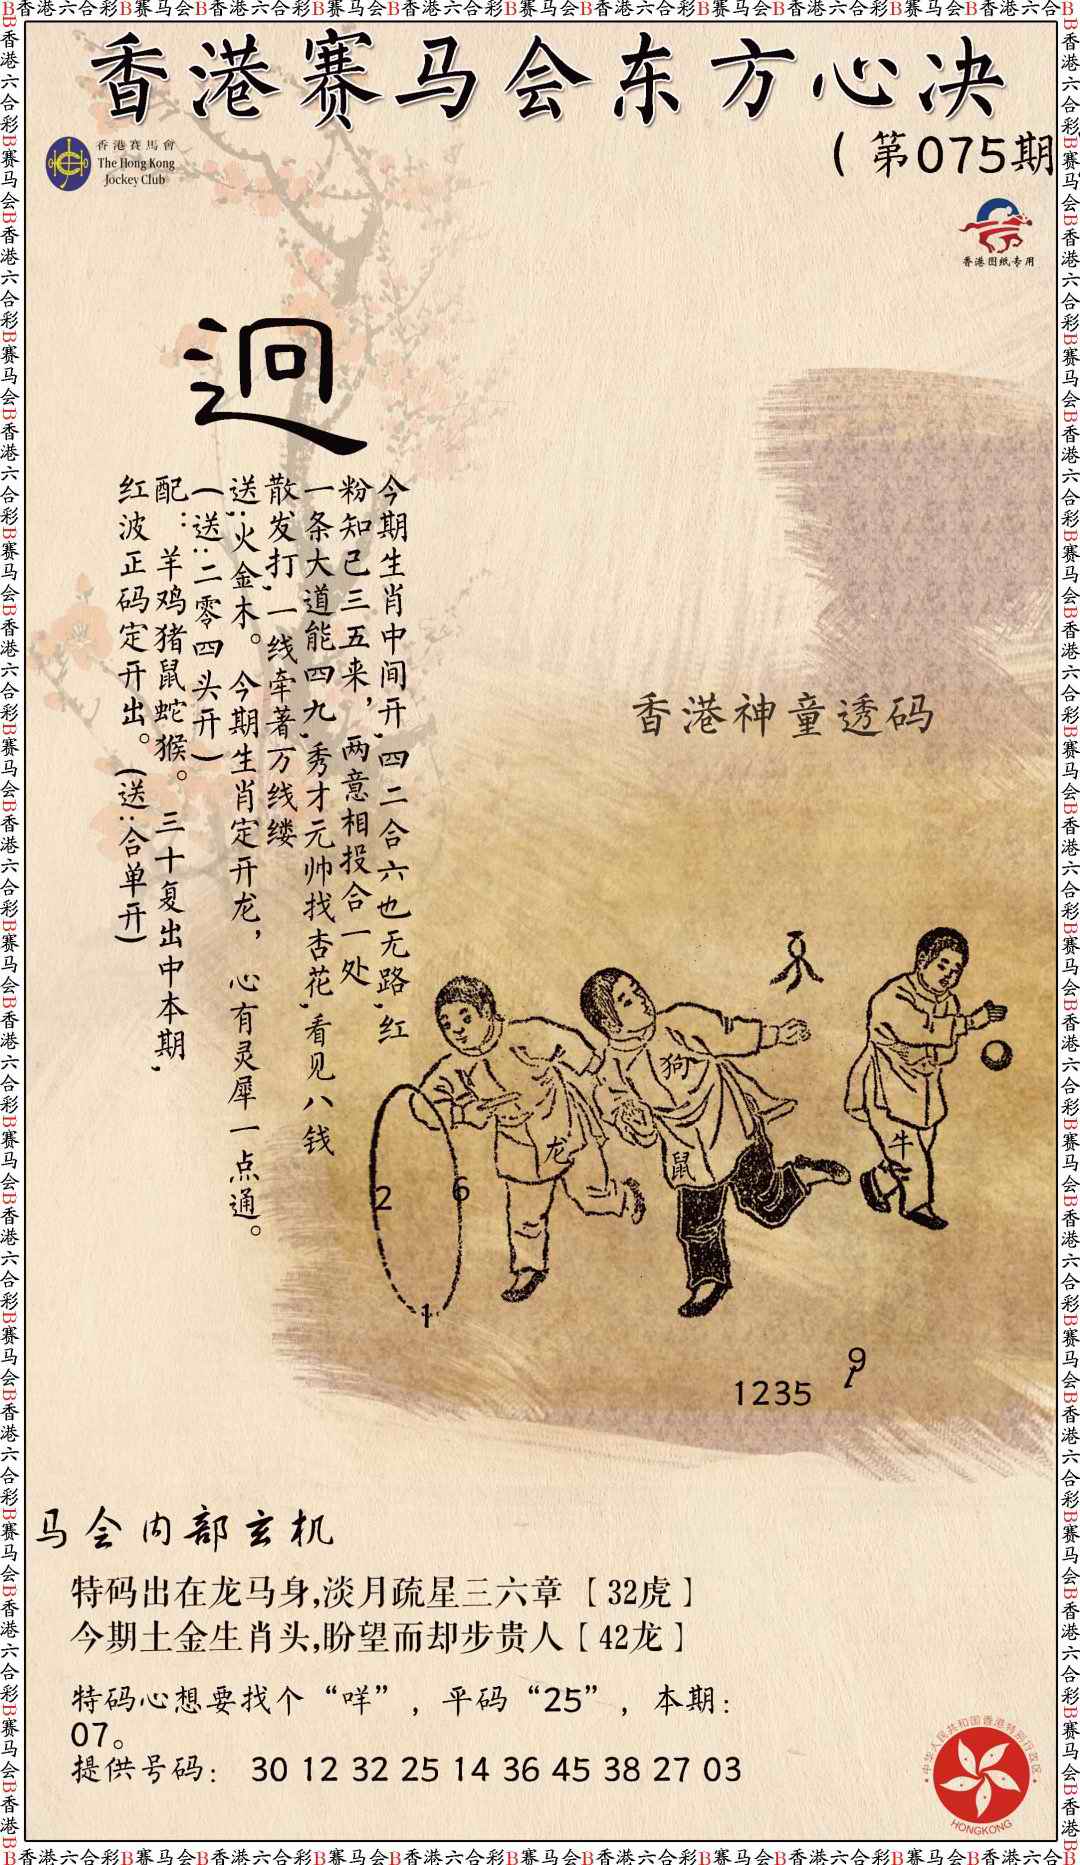 香港赛马会东方心决
(第075期
香港賽馬會
The Hong Kong
Jockey Club
香港图纸专用
迥
今期生肖中间开,四二合六也无路,红
粉知己三五来,两意相投合一处
一条大道能四九,秀才元帅找杏花,看见八钱
散发打,一线牵著万线缕
送;火金木。今期生肖定开龙,心有灵犀一点通。
(送:二零四头开)
配:羊鸡猪鼠蛇猴。三十复出中本期,
红波正码定开出。(送:合单开)
香港神童透码
狗
龙
鼠
牛
2
6
1
9
1
1235
马会内部玄机
特码出在龙马身,淡月疏星三六章【32虎】
今期土金生肖头,盼望而却步贵人【42龙】
特码心想要找个“咩”,平码“25”,本期:
07。
提供号码: 30 12 32 25 14 36 45 38 27 03
中华人民共和国香港特别行政区
HONGKONG
B香港六合彩B赛马会B香港六合彩B赛马会B香港六合彩B赛马会B香港六合彩B赛马会B香港六合彩B赛马会B香港六合